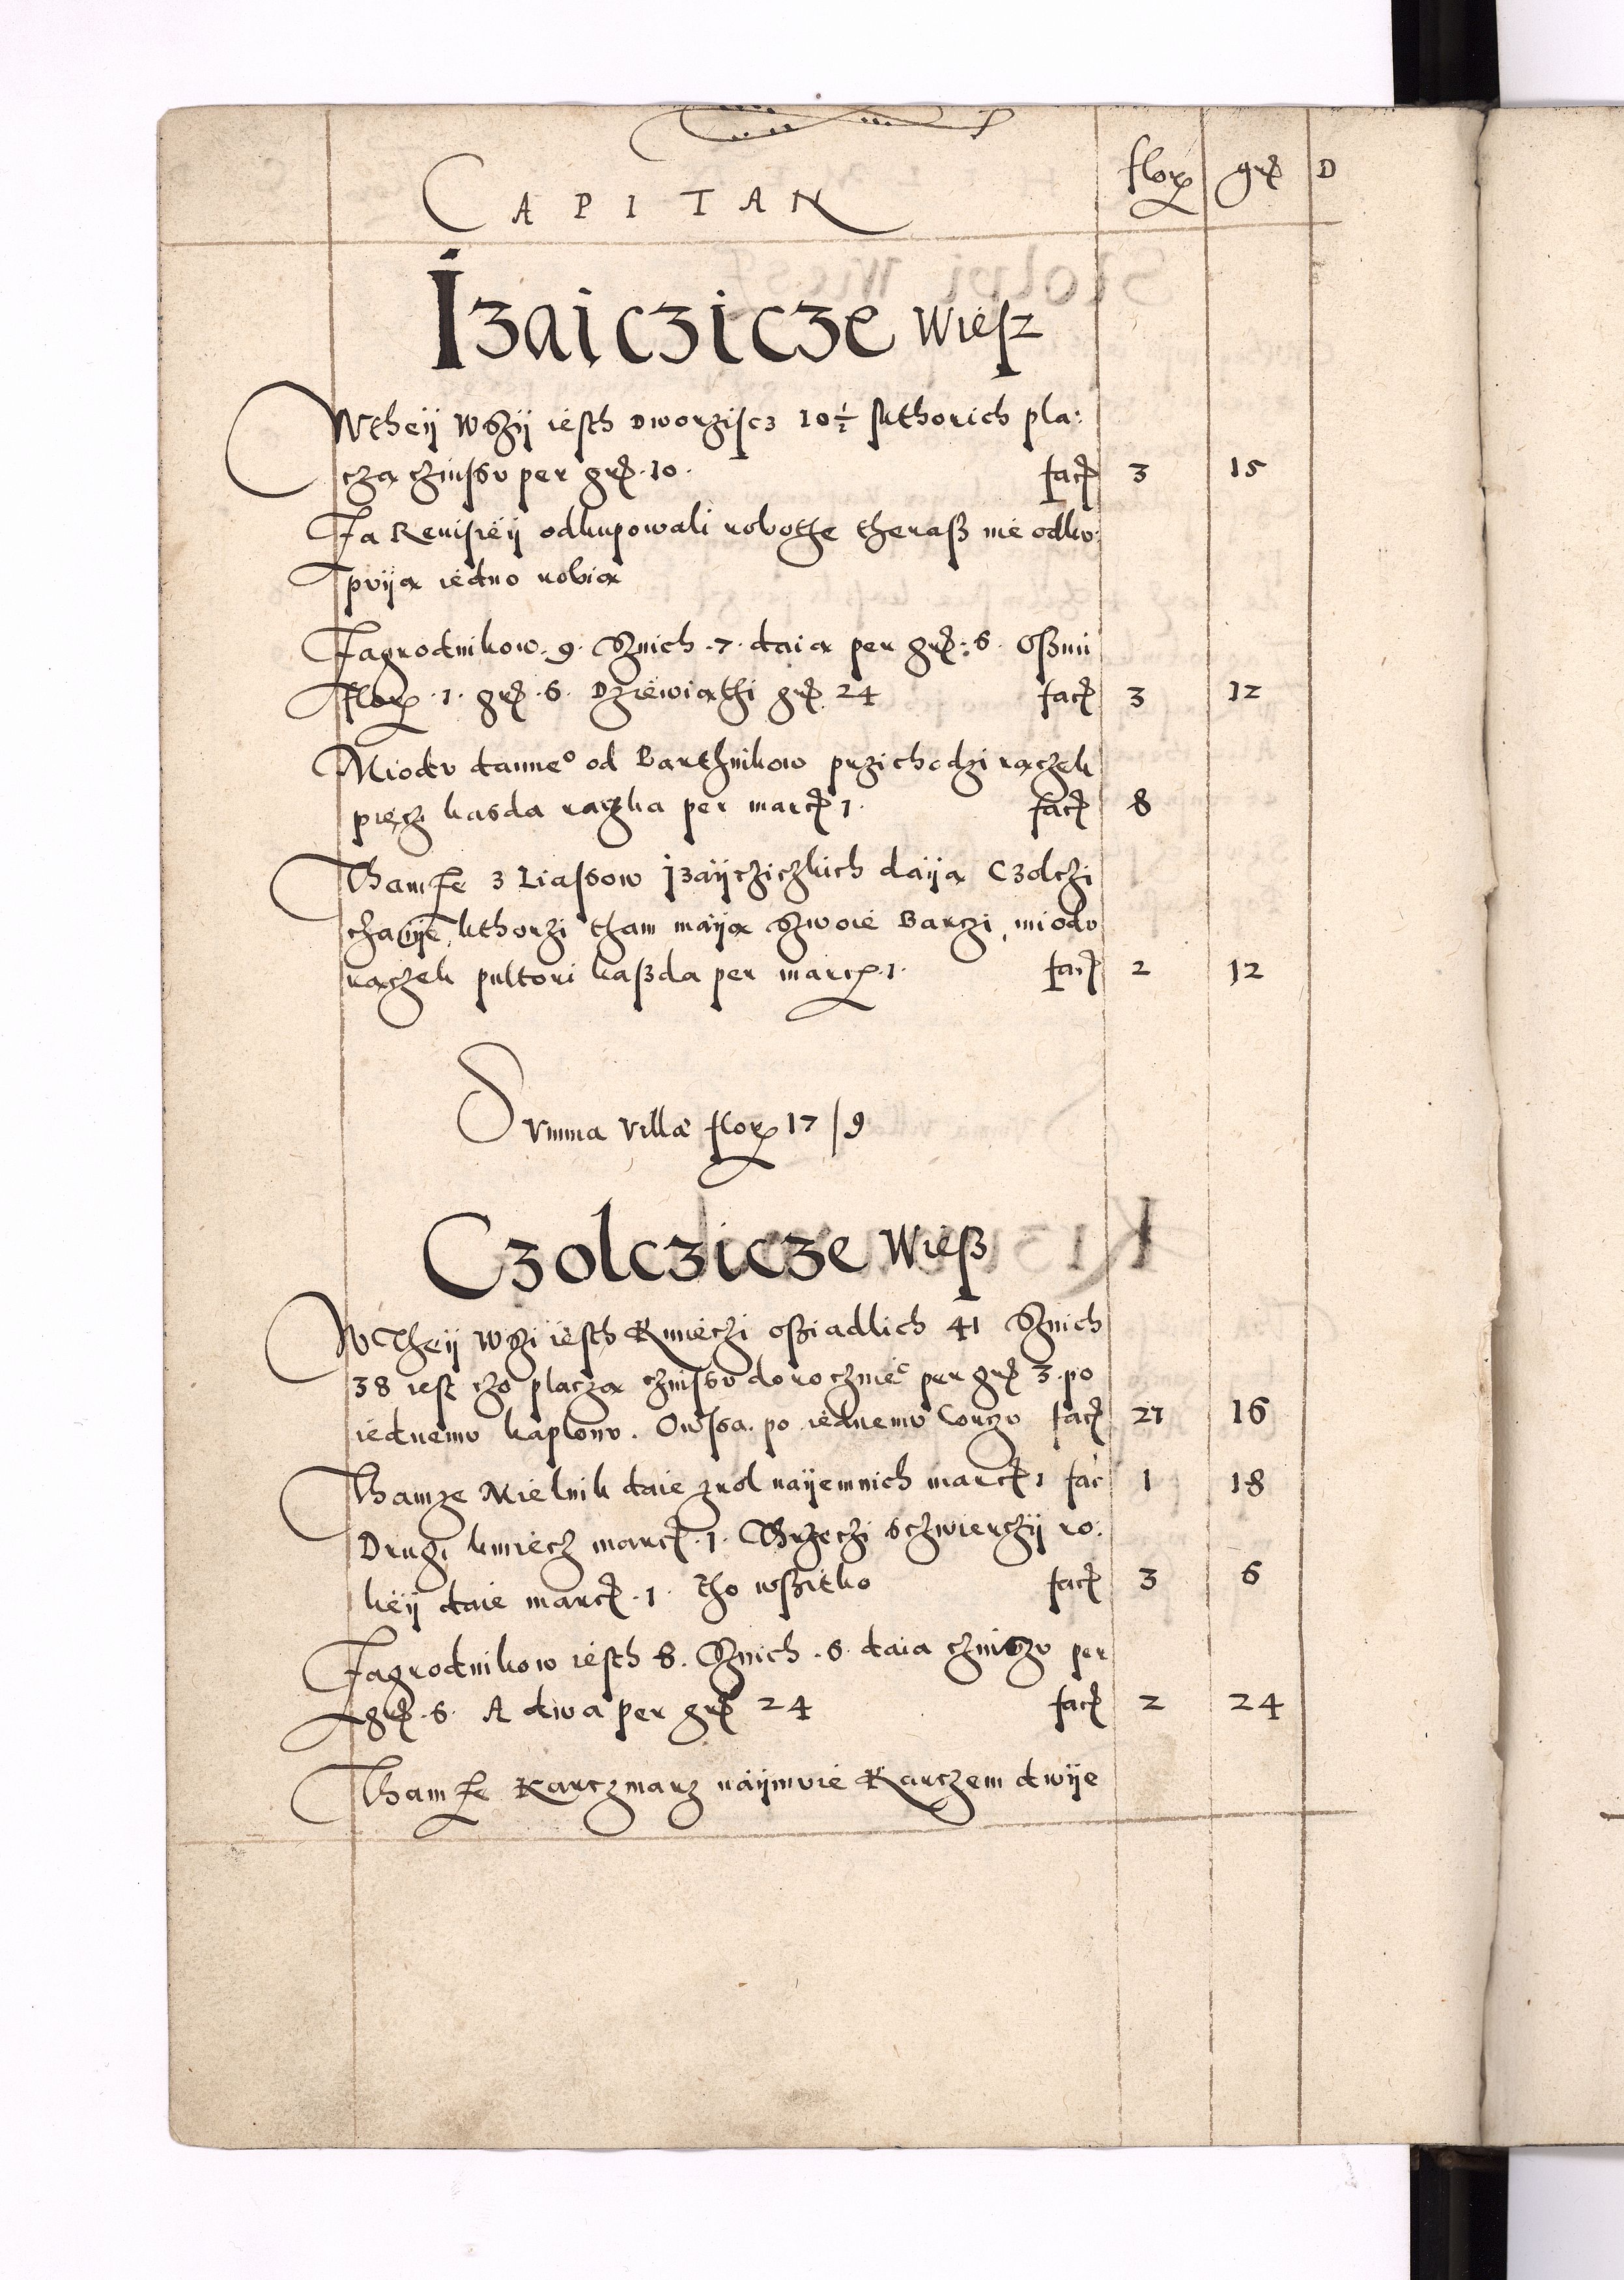 CAPITAN flor gr D
Izaiczicze Wiesz
Wtheÿ Wszÿ iesth Dworziscz 10½ skthorich pla:
cza czinssv per gr. 10. facit 3 15
Za Revisieÿ odkupowali robothe theraß nie odkv:
pvÿa iedno robia
Zagrodnikow. 9. Sznich .7. daia per gr: 6. Oßmi
flor .1. gr .6. Dziewiathi gr 24 facit 3 12
Miodv danneo od Barthnikow przichodzi raczek
piecz kasda raczka per marc 1. facit 8
Thamze z Liassow Izaÿcziczkich daÿa Czolczi
czanÿe, kthorzi tham maÿa Szwoie Barzi, miodv
raczek pultori kaßda per marc .1. facit 2 12
Svmma villæ flor 17/9
Czolczicze Wieß
WTheÿ Wszi iesth Kmieczi oßiadlich 41 Sznich
38 iest czo placza czinssv doroczniec per gr 3. po
iednemv kaplonv. Owssa. po iednemv Corczv facit 27 16
Thamze Mielnik daie zrol naÿemnich marc 1 fac 1 18
Drugi kmiecz marc .1. Thrzeczi sczwierczÿ ro:
leÿ daie marc .1. tho wßitko facit 3 6
Zagrodnikow iesth 8. Sznich .6. daia czinszv per
gr .6. A dwa per gr 24 facit 2 24
Thamze Karczmarz naÿmvie Karczem dwÿe